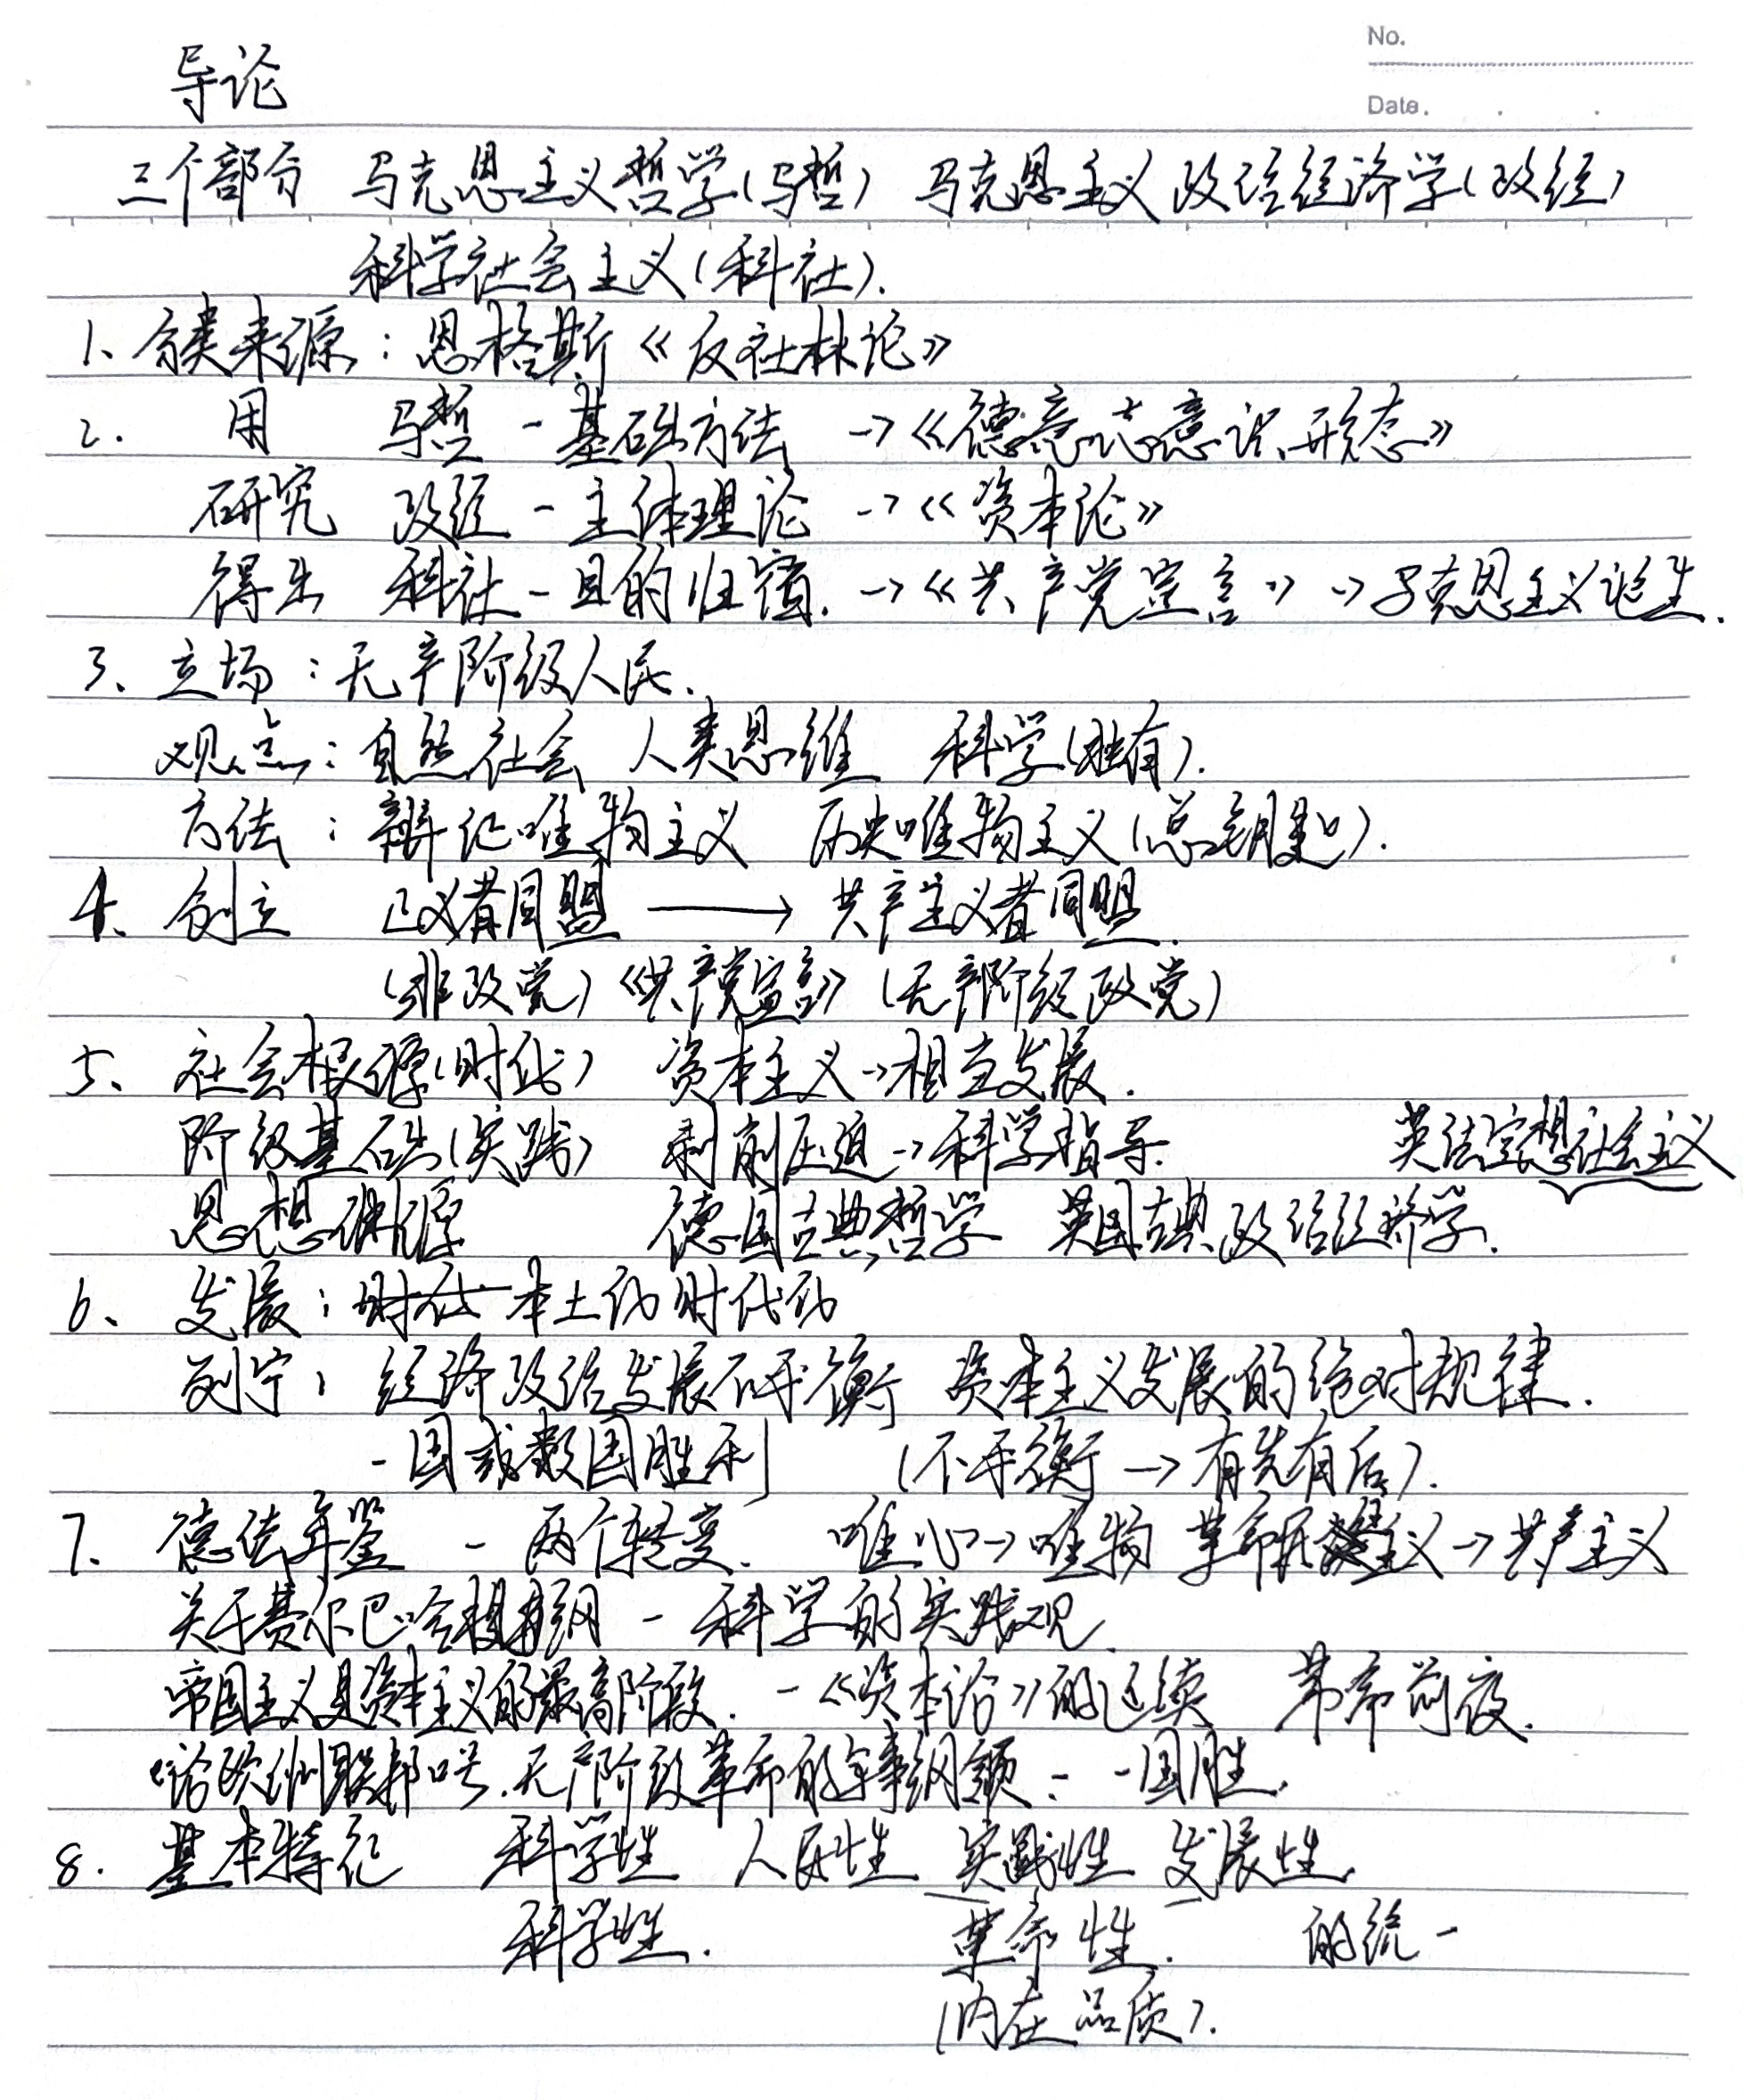 No.
导论
Date.
三个部分 马克思主义哲学(马哲) 马克思主义政治经济学(政经)
科学社会主义(科社).
1、分类来源:恩格斯《反杜林论》
2. 用 马哲-基础方法 →《德意志意识形态》
研究 政经-主体理论 →《资本论》
得出 科社-目的归宿. →《共产党宣言》→马克思主义诞生.
3、立场:无产阶级人民.
观点:自然社会 人类思维 科学(独有).
方法:辩证唯物主义 历史唯物主义(总钥匙).
4、创立 正义者同盟 → 共产主义者同盟.
(非政党)《共产党宣言》(无产阶级政党)
5、社会根源(时代) 资本主义→相当发展.
阶级基础(实践) 剥削压迫→科学指导. 英法空想社会主义
思想渊源 德国古典哲学 英国古典政治经济学.
6、发展:时代 本土化时代化
列宁: 经济政治发展不平衡 资本主义发展的绝对规律.
一国或数国胜利 (不平衡→有先有后).
7、德法年鉴 - 两个转变. 唯心→唯物 革命民主主义→共产主义
关于费尔巴哈提纲-科学的实践观.
帝国主义是资本主义的最高阶段.-《资本论》的延续 革命前夜.
论欧洲联邦口号.无产阶级革命的军事纲领- 一国胜.
8. 基本特征 科学性 人民性 实践性 发展性.
科学性. 革命性. 的统一
(内在品质).